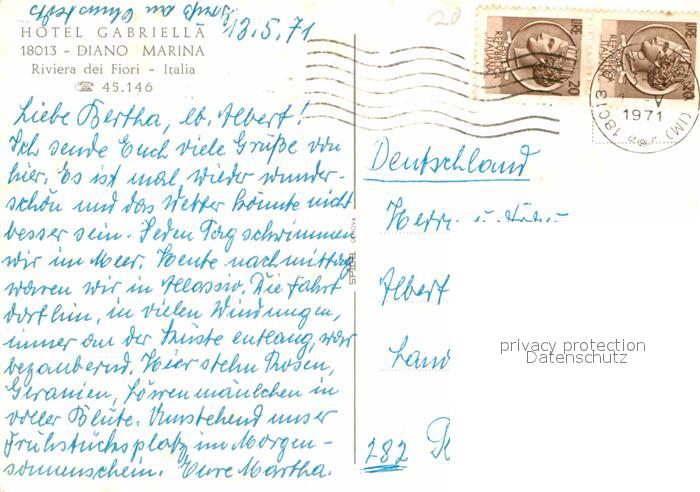 13.5.71
HOTEL GABRIELLA
18013 - DIANO MARINA
Riviera dei Fiori - Italia
☎ 45.146
Liebe Bertha, lb. Albert!
Ich sende Euch viele Grüße von
hier. Es ist mal wieder wunder-
schön und das Wetter könnte nicht
besser sein. Jeden Tag schwimmen
wir im Meer. Heute nachmittag
waren wir in Allassio. Die Fahrt
dorthin, in vielen Windungen,
immer an der Küste entlang, war
bezaubernd. Hier stehn Rosen,
Geranien, Löwenmäulchen in
voller Blüte. Umstehend unser
Frühstücksplatz im Morgen-
sonnenschein. Eure Martha.
20
LIRE 20
REPVBBLICA
18013
1971
(IM)
Deutschland
Herrn u. Frau
Albert
Land
282
privacy protection
Datenschutz